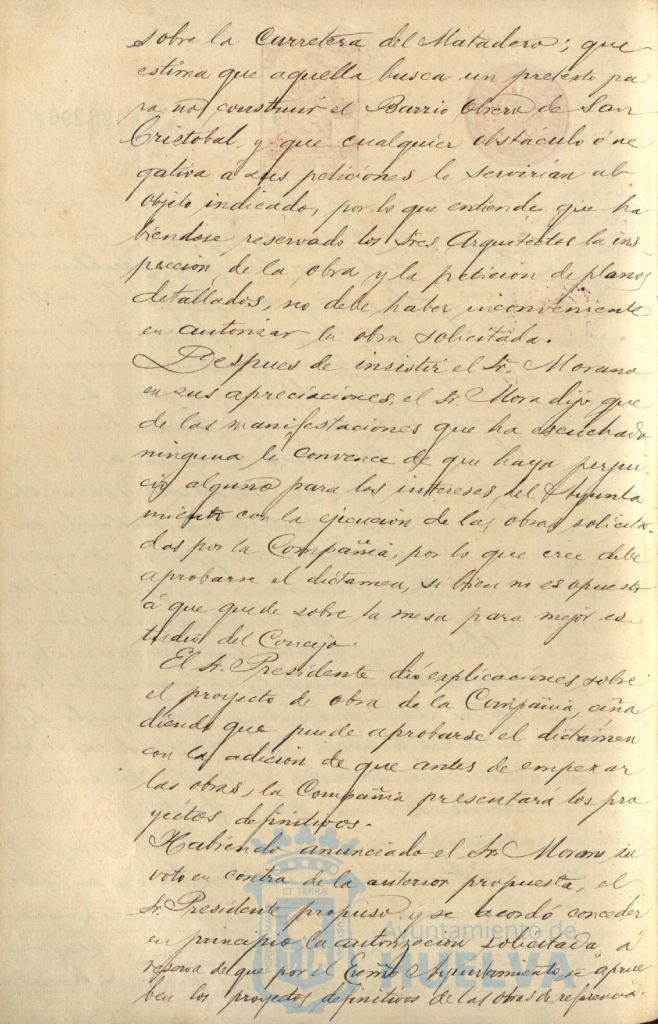 sobre la Carretera del Matadero; que
estima que aquella busca un pretexto pa
ra no construir el Barrio Obrero de San
Cristobal, y que cualquier obstáculo ó ne
gativa á sus peticiones le servirían al
objeto indicado, por lo que entiende que ha
biendose reservado los Sres. Arquitectos la ins
pección de la obra y la petición de planos
detallados, no debe haber inconveniente
en autorizar la obra solicitada.
Despues de insistir el Sr. Morano
en sus apreciaciones, el Sr. Mora dijo que
de las manifestaciones que ha escuchado
ninguna le convence de que haya perjui
cio alguno para los intereses del Ayunta
miento con la ejecución de las obras solicita-
das por la Compañia, por lo que cree debe
aprobarse el dictamen, si bien no es opuesto
á que quede sobre la mesa para mejor es
tudio del Concejo.
El Sr. Presidente dió explicaciones sobre
el proyecto de obra de la Compañia, aña
diendo que puede aprobarse el dictámen
con la adición de que antes de empezar
las obras, la Compañia presentará los pro
yectos definitivos.
Habiendo anunciado el Sr. Morano su
voto en contra de la anterior propuesta, el
Sr. Presidente propuso y se acordó conceder
en principio la autorización solicitada á
reserva de que por el Excmo Ayuntamiento se aprue
ben los proyectos definitivos de las obras de referencia.
Ayuntamiento de
HUELVA